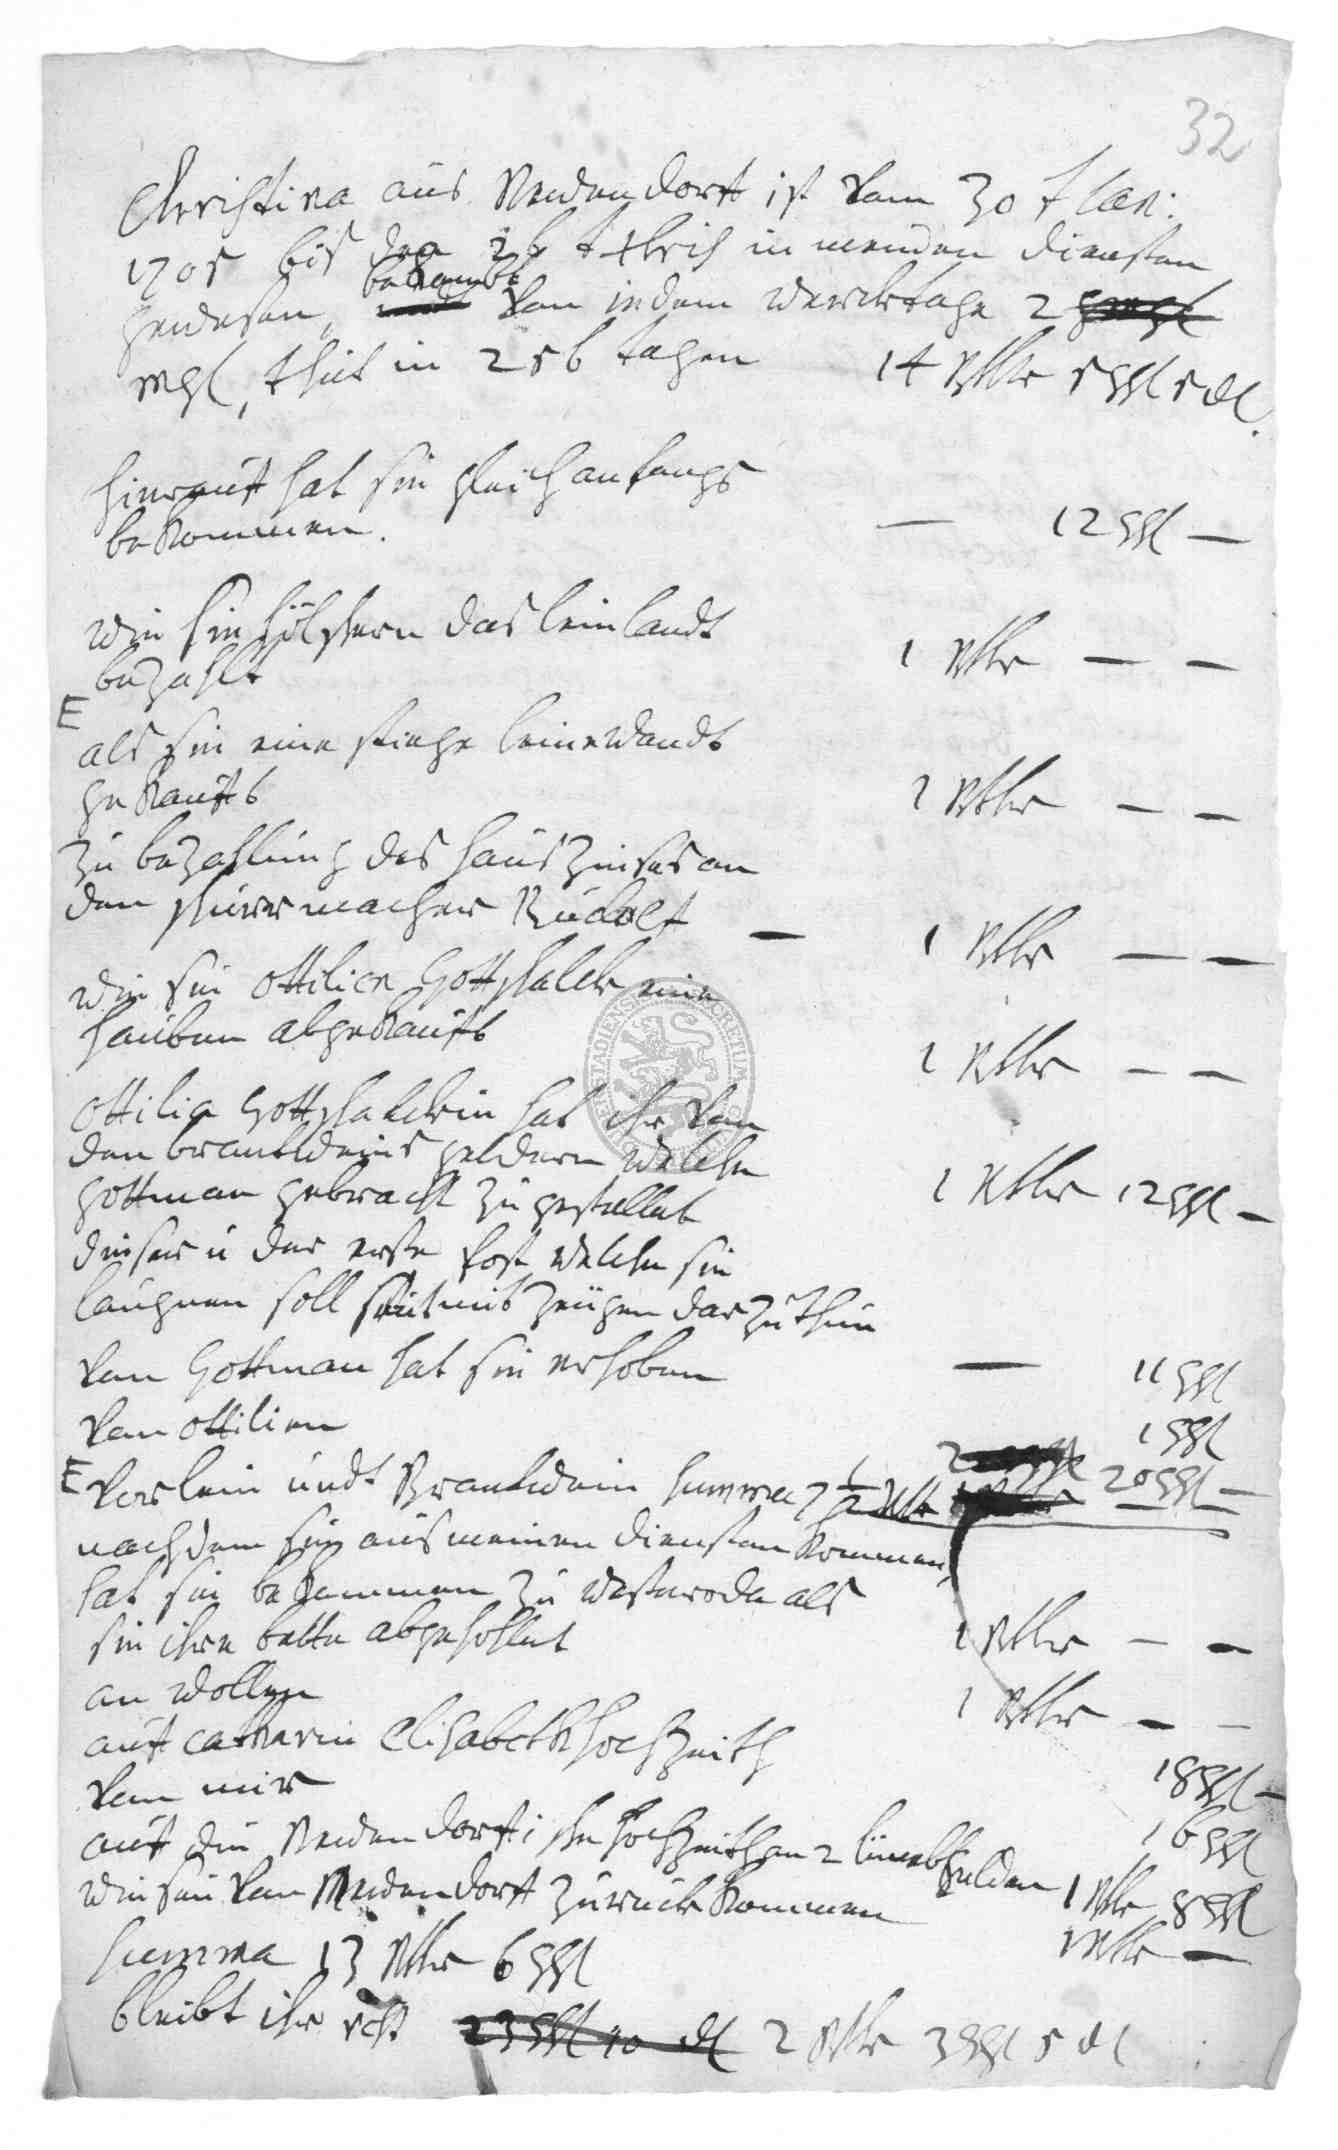 32
Christina aus Neuendorff ist vom 30 t Jan:
1705 bis den 26 t in meinen diensten
gewesen, bekombt von iedem werckstage 2
mgl, thut in 256 tagen 14 Rthlr 5 ggl 5 dl.
hierauff hat sie gleich anfangs
bekommen. — 12 ggl —
wie sie das leinlandt
bezahlt 1 Rthlr — —
E
als sie eine stiege leinewandt
gekaufft 1 Rthlr — —
zu bezahlung des haus zinses an
den Rudolf — 1 Rthlr — —
wie sie Ottilien Gottschalck eine
hauben abgekaufft 1 Rthlr — —
Ottilia Gottschalckin hat ihr von
den brantweins geldern welche
Gottman gebracht zu gestellet 1 Rthlr 12 ggl —
dieser u der erste post welche sie
laugnen soll mit zeugen darzuthun
von Gottman hat sie erhoben — 11 ggl
von Ottilien 1 ggl
E vor lein undt Brantwein summa 7 1/2 Rthlr 20 ggl —
nachdem sie aus meinen diensten kommen,
hat sie bekommen zu westerode als
sie ihre bette abgehohlet 1 Rthlr — —
an wollen 1 Rthlr — —
auff Catharin Elisabeth hochzeith 18 ggl —
von mir 16 ggl
auff die Neuendorffische hochzeith an 2 gulden 1 Rthlr 8 ggl
wie sie von Neuendorff zuruck kommen 1 Rthlr —
summa 13 Rthlr 6 ggl
bleibt ihr rest 23 ggl 10 dl 2 Rthlr 3 ggl 5 dl